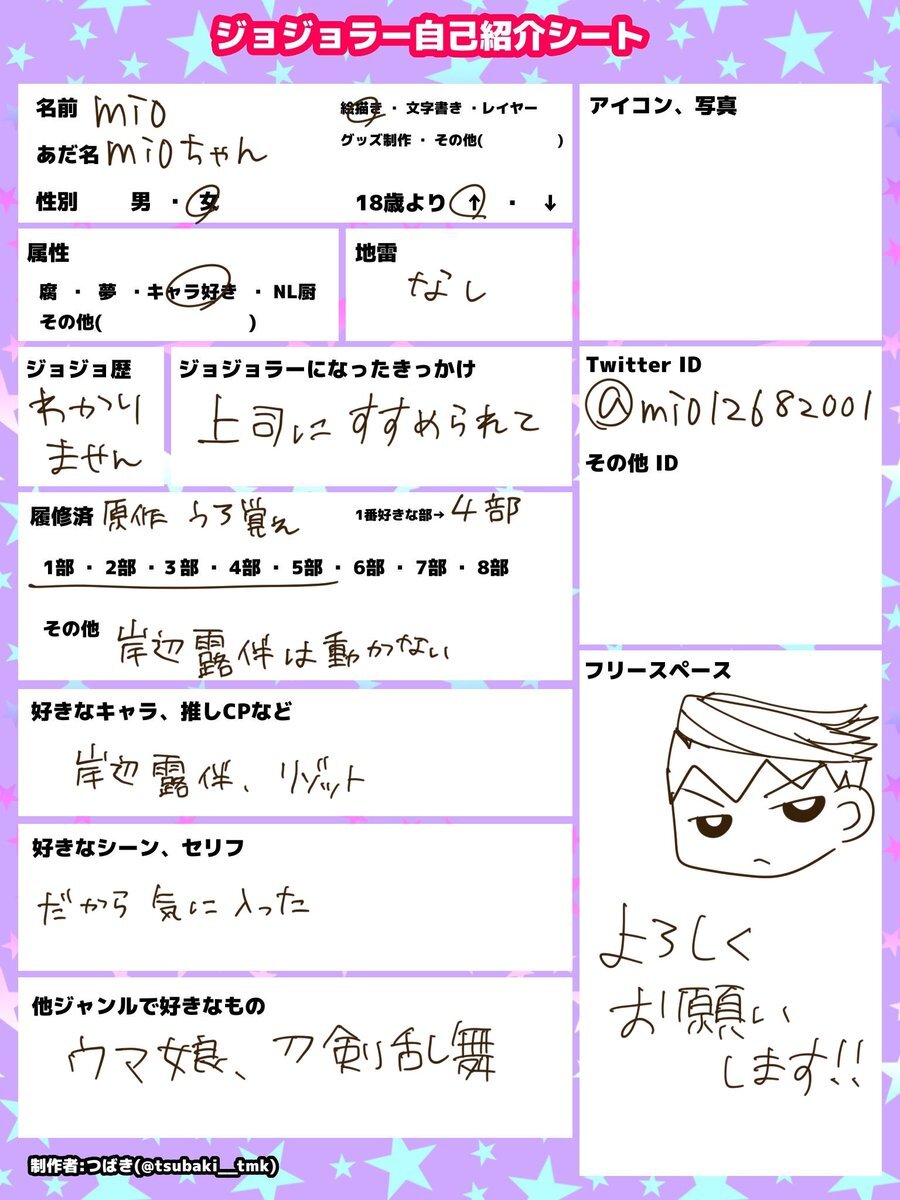 ジョジョラー自己紹介シート
名前 mio
あだ名 mioちゃん
性別 男 ・ 女
絵描き ・ 文字書き ・レイヤー
グッズ制作 ・ その他( )
18歳より ↑ ・ ↓
属性
腐 ・ 夢 ・キャラ好き ・ NL厨
その他( )
地雷
なし
ジョジョ歴
わかり
ません
ジョジョラーになったきっかけ
上司にすすめられて
履修済 原作 うろ覚え
1番好きな部→ 4部
1部 ・ 2部 ・3部 ・ 4部 ・ 5部 ・ 6部 ・ 7部 ・ 8部
その他 岸辺露伴は動かない
好きなキャラ、推しCPなど
岸辺露伴、リゾット
好きなシーン、セリフ
だから気に入った
他ジャンルで好きなもの
ウマ娘、刀剣乱舞
アイコン、写真
Twitter ID
@mio12682001
その他 ID
フリースペース
よろしく
お願い
します!!
制作者:つばき(@tsubaki__tmk)